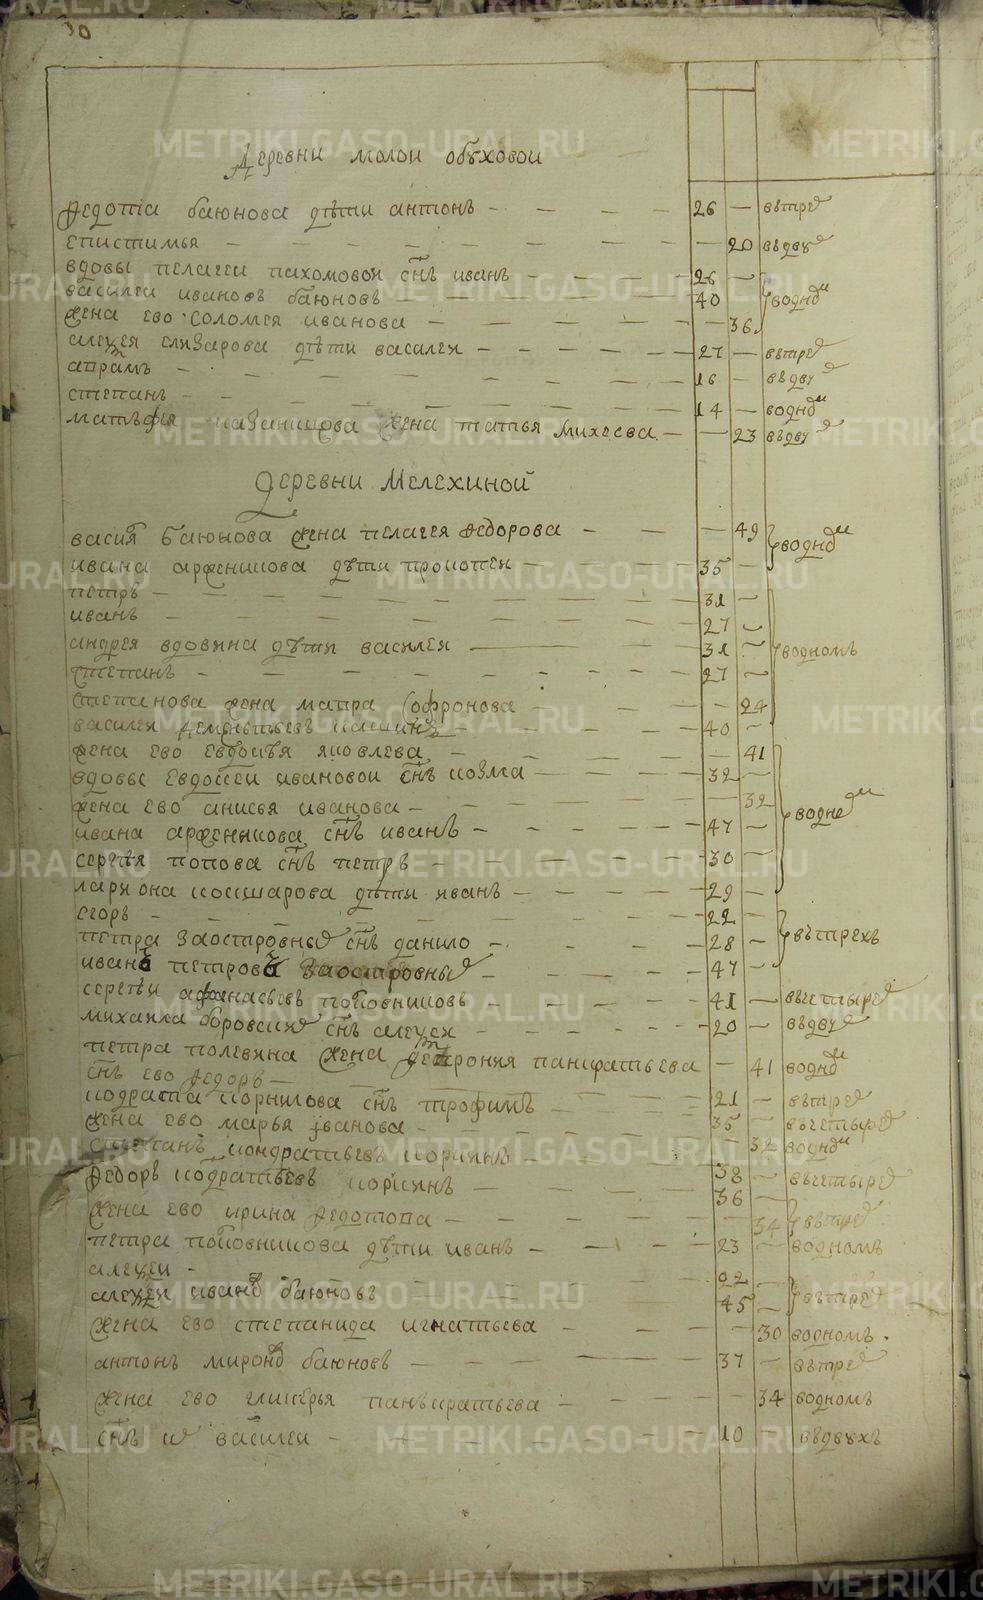 30
Деревни малои обуховои
Федота баюнова дѣти антонъ 26 — вътрех
епистимья — 20 въдвух
вдовы пелагеи пахомовои снъ иванъ 26 —
василеи ивановъ баюновъ 40 — водном
жена ево соломея иванова — 36
алеѯея елизарова дѣти василеи 27 — вътрех
абрамъ 16 — въдвух
степанъ 14 — водном
матвѣя жена татья михеева — 23 въдвух
Деревни Мелехиной
васил баюнова жена пелагея федорова — 49 водном
ивана арженикова дѣти прокопеи 35 —
петръ 31 —
иванъ 27 —
андрея вдовина дѣти василеи 31 — водномъ
степанъ 27 —
степанова жена мавра софронова — 24
василеи дементьевъ 40 —
жена ево евдокѣя яковлева — 41
вдовы евдокеи ивановои снъ козма 32 —
жена ево анисья иванова — 32 водне м
ивана арженикова снъ иванъ 47 —
сергѣя попова снъ петръ 30 —
лариона кокшарова дѣти иванъ 29 —
егоръ 22 —
петра заостровных снъ данило 28 — вътрехъ
иванъ петровъ заостровных 47 —
сергѣи афанасьевъ половниковъ 41 — вчетырех
михаила боровских снъ алеѯеи 20 — въдвух
петра полевина жена феѳрония панкратьева — 41 водном
снъ ево федоръ 21 — вътрех
кодрата корнилова снъ трофимъ 35 — вчетырех
жена ево марья иванова — 32 водном
степанъ кондратьевъ 38 — вчетырех
федоръ кодратьевъ 36 —
жена ево ирина федотова — 34 вътрех
петра половникова дѣти иванъ 23 — водномъ
алеѯеи 22 —
алеѯеи иванов баюновъ 45 — вътрех
жена ево степанида игнатьева — 30 водномъ
антонъ миронов баюновъ 37 — вътрех
жена ево гликерья панъкратьева — 34 водномъ
снъ их василеи 10 — въдвухъ
METRIKI.GASO-URAL.RU